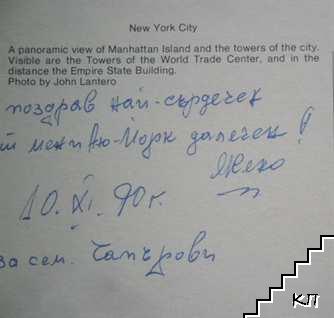 New York City
A panoramic view of Manhattan Island and the towers of the city.
Visible are the Towers of the World Trade Center, and in the
distance the Empire State Building.
Photo by John Lantero
поздрав най-сърдечен
Ню-Йорк далечен!
Жеко
10. XI. 90 г.
за сем. Чапърови
КП